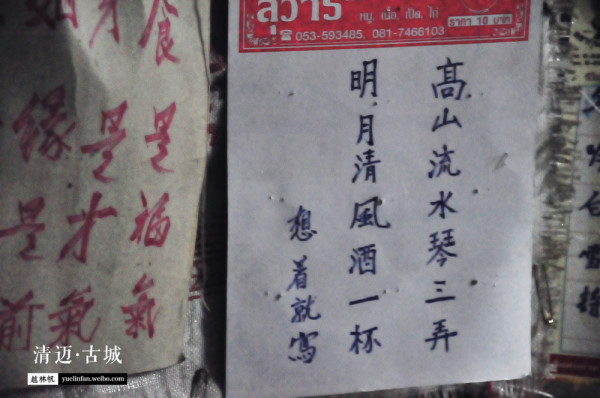 หมู, เนื้อ, เป็ด, ไก่
ราคา 10 บาท
☎ 053-593485, 081-7466103
髙山流水琴三弄
明月清風酒一杯
想着就寫
食是福氣
才是才氣
緣是前
清迈·古城
趙林帆 yuelinfan.weibo.com